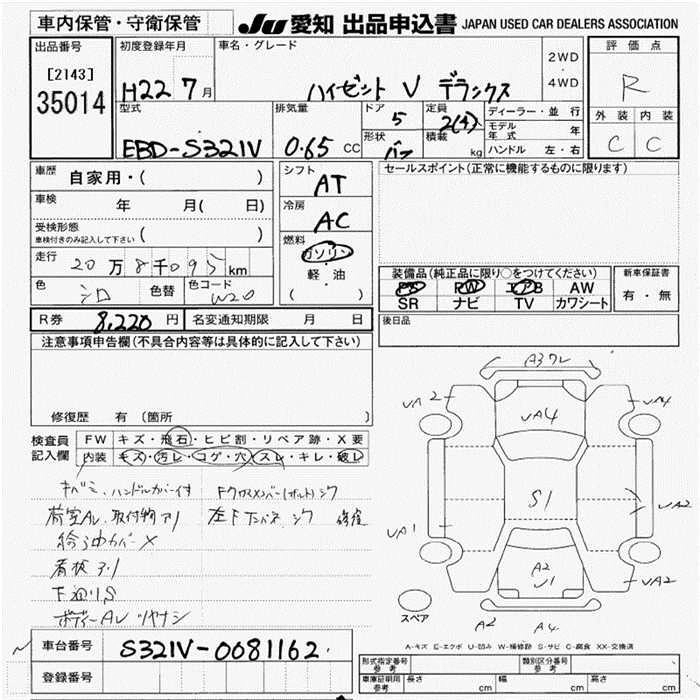 車内保管・守衛保管 JU 愛知 出品申込書 JAPAN USED CAR DEALERS ASSOCIATION
出品番号 初度登録年月 車名・グレード 評価点
[2143] 2WD
35014 H22 7月 ハイゼット V デラックス 4WD R
型式 排気量 ドア 5 定員 2(4)人 ディーラー・並行 外装 内装
EBD-S321V 0.65 CC 形状 バン 積載 kg モデル年式 年 C C
ハンドル 左・右
車歴 自家用・( ) シフト AT セールスポイント(正常に機能するものに限ります)
車検 年 月( 日) 冷房 AC
受検形態
車検付きのみ記入して下さい ( )
燃料 ガソリン
走行 20万8千095km 軽・油
装備品(純正品に限り○をつけてください) 新車保証書
色 シロ 色替 色コード W20 ( )
PS PW エアB AW 有・無
SR ナビ TV カワシート
R券 8,220円 名変通知期限 月 日 後日品
注意事項申告欄(不具合内容等は具体的に記入して下さい)
修復歴 有(箇所 )
検査員 FW キズ・飛石・ヒビ割・リペア跡・X要
記入欄 内装 キズ・汚レ・コゲ・穴・スレ・キレ・破レ
キバミ、ハンドルカバー付
荷室AL、取付物アリ
カバーX
看板アリ
下廻りS
ボディーAL ツヤナシ
A3ワレ
UA2
UA4
UA4
S1
UA2
UA1
A2
U1
UA2
A2 A4
スペア
A-キズ E-エクボ U-凹み W-補修跡 S-サビ C-腐食 XX-交換済
車台番号 S321V-0081162
形式指定番号 参考 類別区分番号 参考
登録番号
車庫証明用 参考 長さ cm 幅 cm 高さ cm